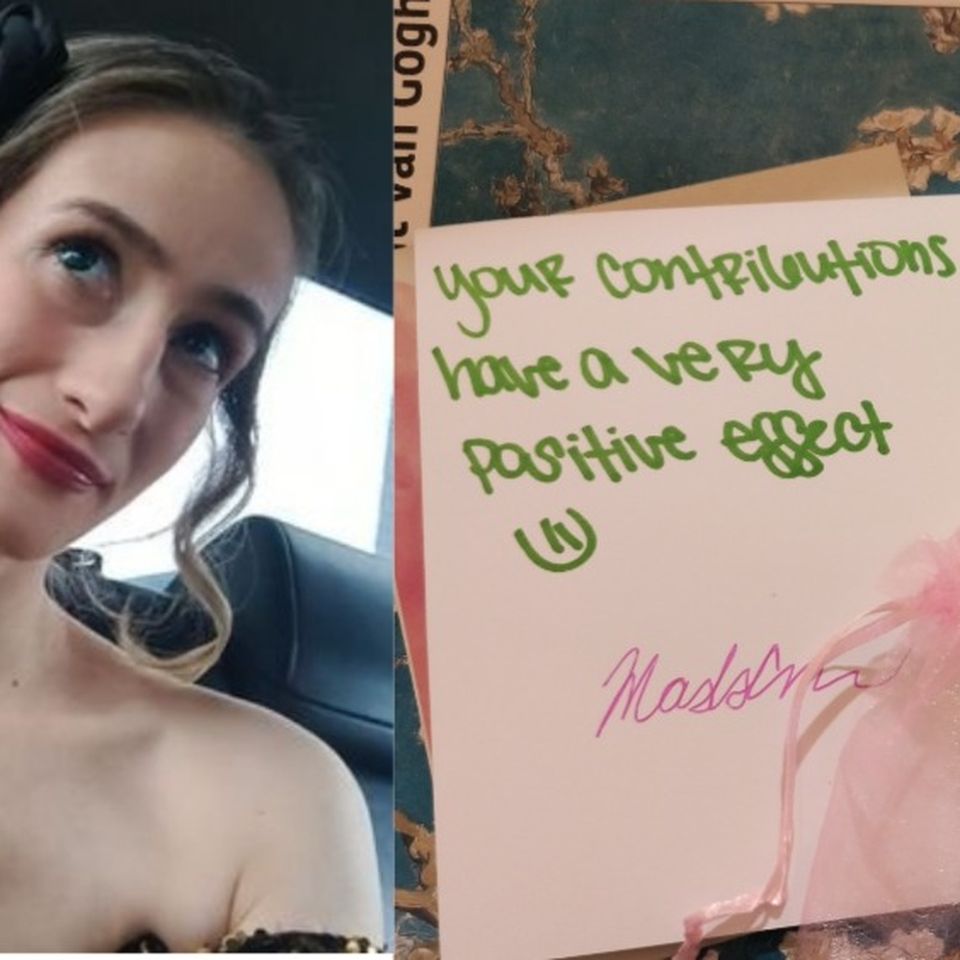 t van Gogh
your contributions
have a very
positive effect